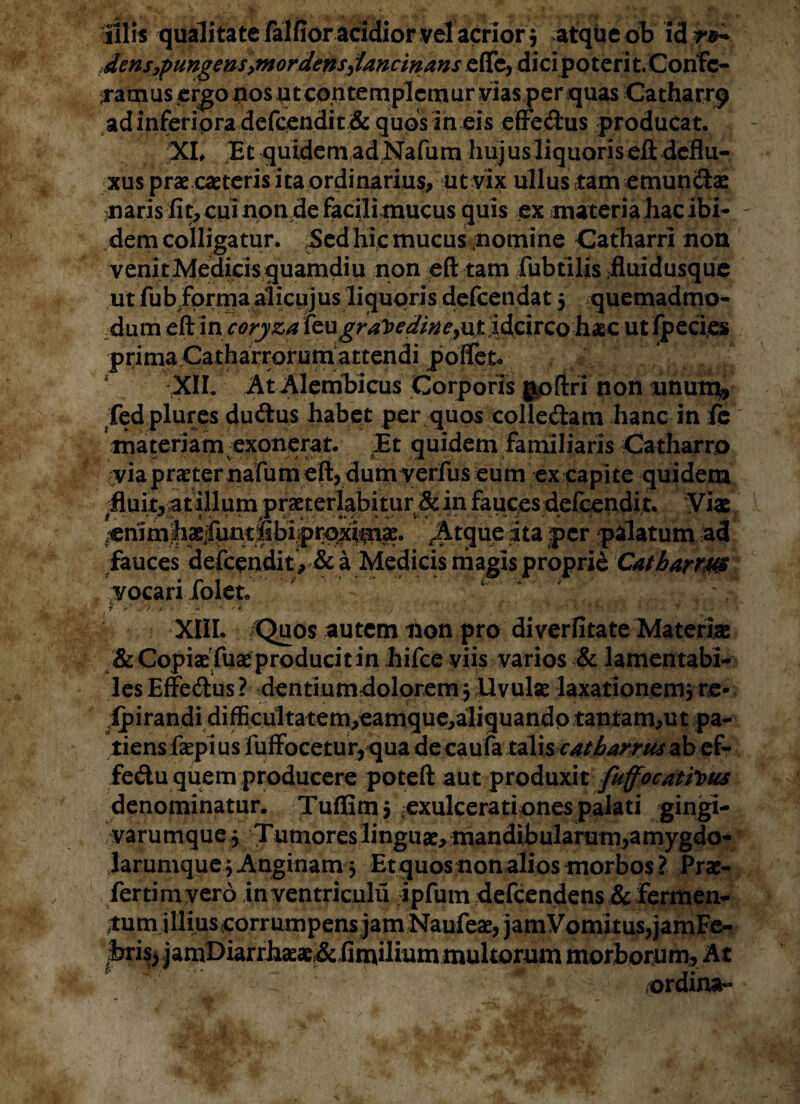 illis qualitate ſalſior acidior vel acrior; atque ob id ro-
dens, pungens, mordens, lancinans eſſe, dici poterit. Conſe-
ramus ergo nos ut contemplemur vias per quas Catharrꝯ
ad inferiora deſcendit & quos in eis effectus producat.
XI. Et quidem ad Naſum hujus liquoris eſt deflu-
xus præ cæteris ita ordinarius, ut vix ullus tam emunctæ
naris ſit, cui non de facili mucus quis ex materia hac ibi-
dem colligatur. Sed hic mucus nomine Catharri non
venit Medicis quamdiu non eſt tam ſubtilis fluidusque
ut ſub forma alicujus liquoris deſcendat; quemadmo-
dum eſt in coryza ſeu gravedine, ut idcirco hæc ut ſpecies
prima Catharrorum attendi poſſet.
XII. At Alembicus Corporis noſtri non unum,
ſed plures ductus habet per quos collectam hanc in ſe
materiam exonerat. Et quidem familiaris Catharro
via præter naſum eſt, dum verſus eum ex capite quidem
fluit, at illum præterlabitur & in fauces deſcendit. Viæ
enim hæ ſunt ſibi proximæ. Atque ita per palatum ad
fauces deſcendit, & à Medicis magis propriè Catharrus
vocari ſolet.
XIII. Quos autem non pro diverſitate Materiæ
& Copiæ ſuæ producit in hiſce viis varios & lamentabi-
les Effectus? dentium dolorem; Uvulæ laxationem; re-
ſpirandi difficultatem, eamque, aliquando tantam, ut pa-
tiens ſæpius ſuffocetur, qua de cauſa talis catharrus ab ef-
fectu quem producere poteſt aut produxit ſuffocativus
denominatur. Tuſſim; exulcerationes palati gingi-
varumque; Tumores linguæ, mandibularum, amygdo-
larumque; Anginam; Et quos non alios morbos? Præ-
ſertim verò in ventriculū ipſum deſcendens & fermen-
tum illius corrumpens jam Nauſeæ, jam Vomitus, jam Fe-
bris, jam Diarrhææ & ſimilium multorum morborum, At
ordina-